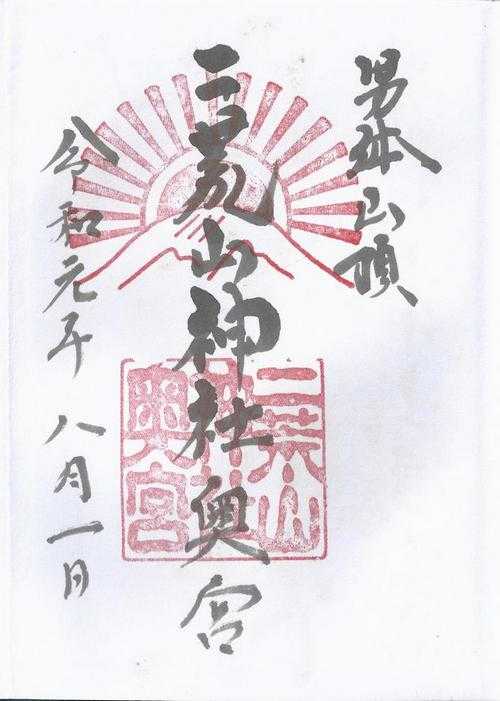 男体山頂
二荒山神社奥宮
二荒山
神社
奥宮
令和元年八月一日